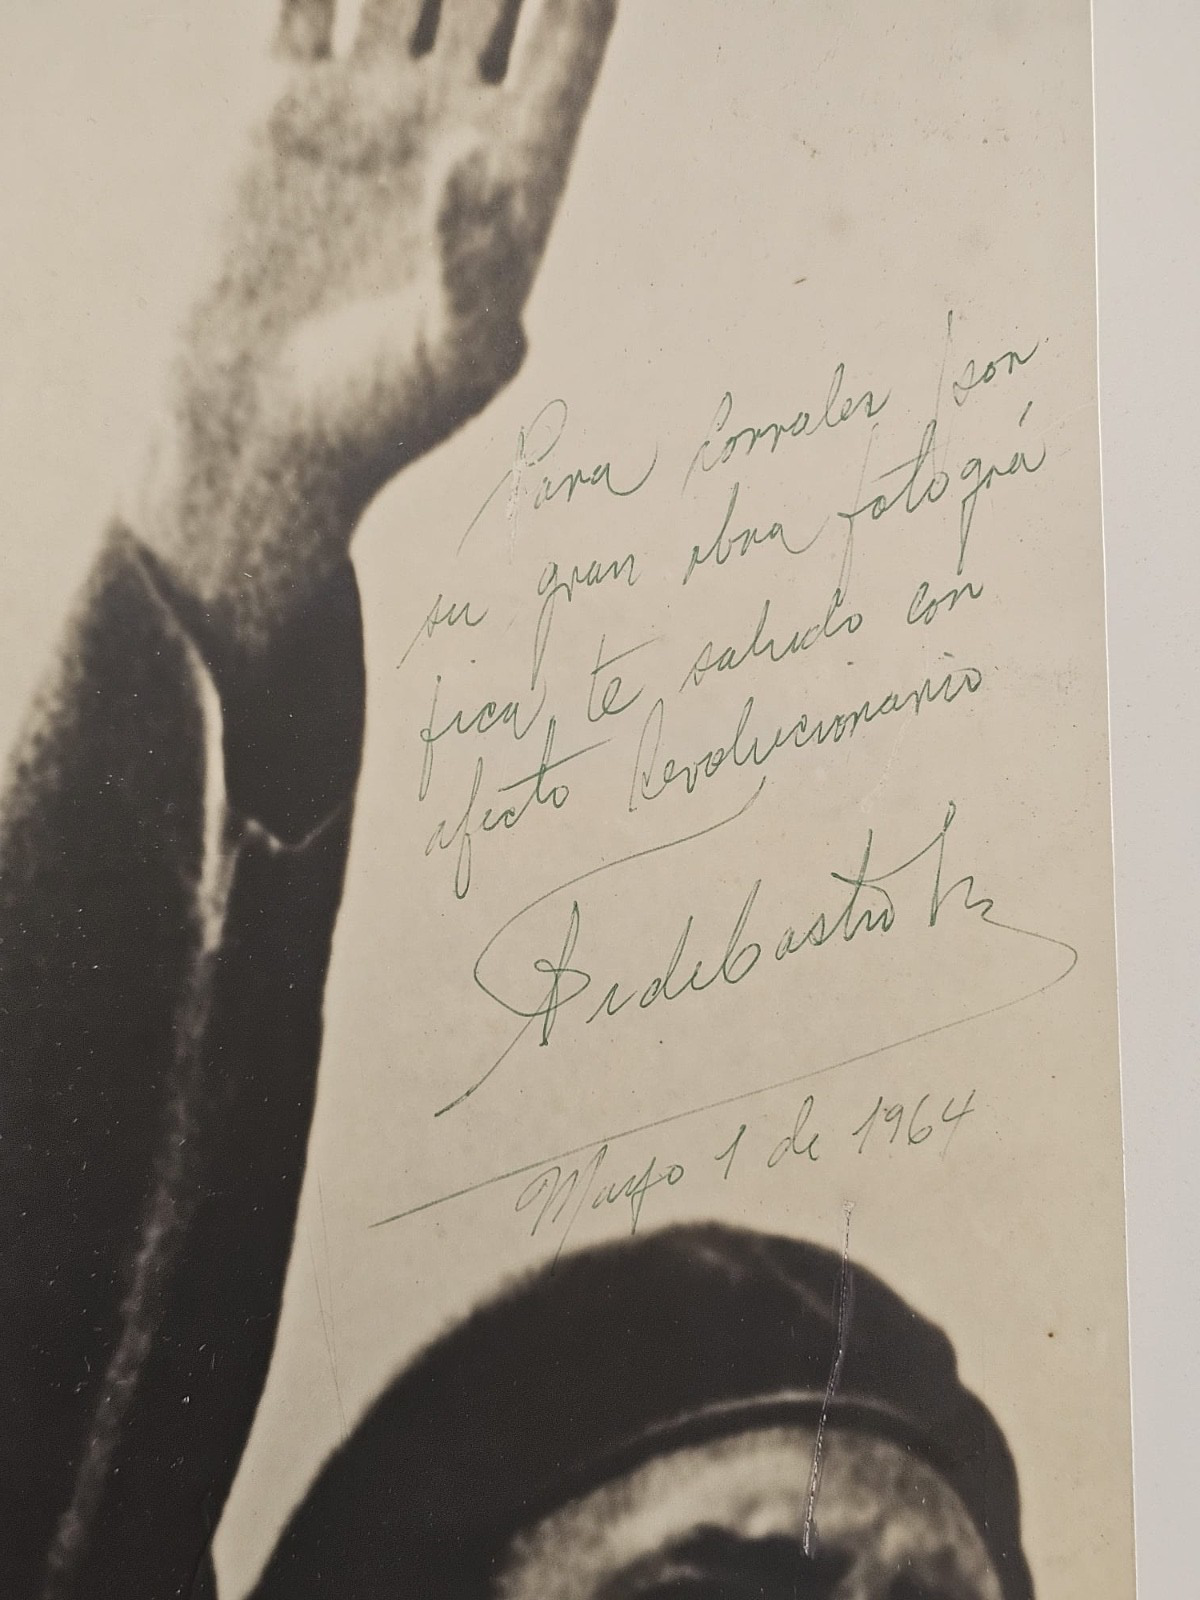 Para Corrales por
su gran obra fotográ
fica te saludo con
afecto Revolucionario
Fidel Castro Rz
Mayo 1 de 1964